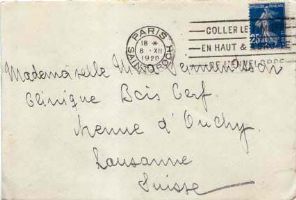 PARIS
18 *
8 · XII
1926
COLLER LE
EN HAUT &
25
Mademoiselle
Clinique Bois Cerf.
Avenue d'Ouchy.
Lausanne
Suisse